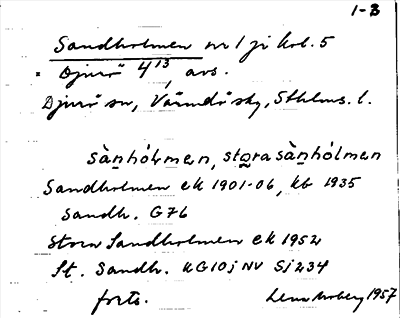 1-3
Sandholmen nr 1 ji kol. 5
Djurö 4¹³, avs.
Djurö sn, Värmdö sky, Sthlms. l.
sànhólmen, storasànhólmen
Sandholmen ek 1901-06, kb 1935
Sandh. G76
Stora Sandholmen ek 1952
St. Sandh. KG10j NV Sj 234
forts.
1957